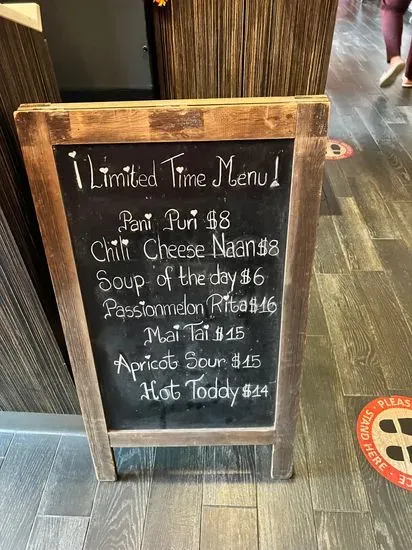 ¡ Limited Time Menu !
Pani Puri $8
Chili Cheese Naan $8
Soup of the day $6
Passionmelon Rita $16
Mai Tai $15
Apricot Sour $15
Hot Toddy $14
PLEAS
STAND HERE